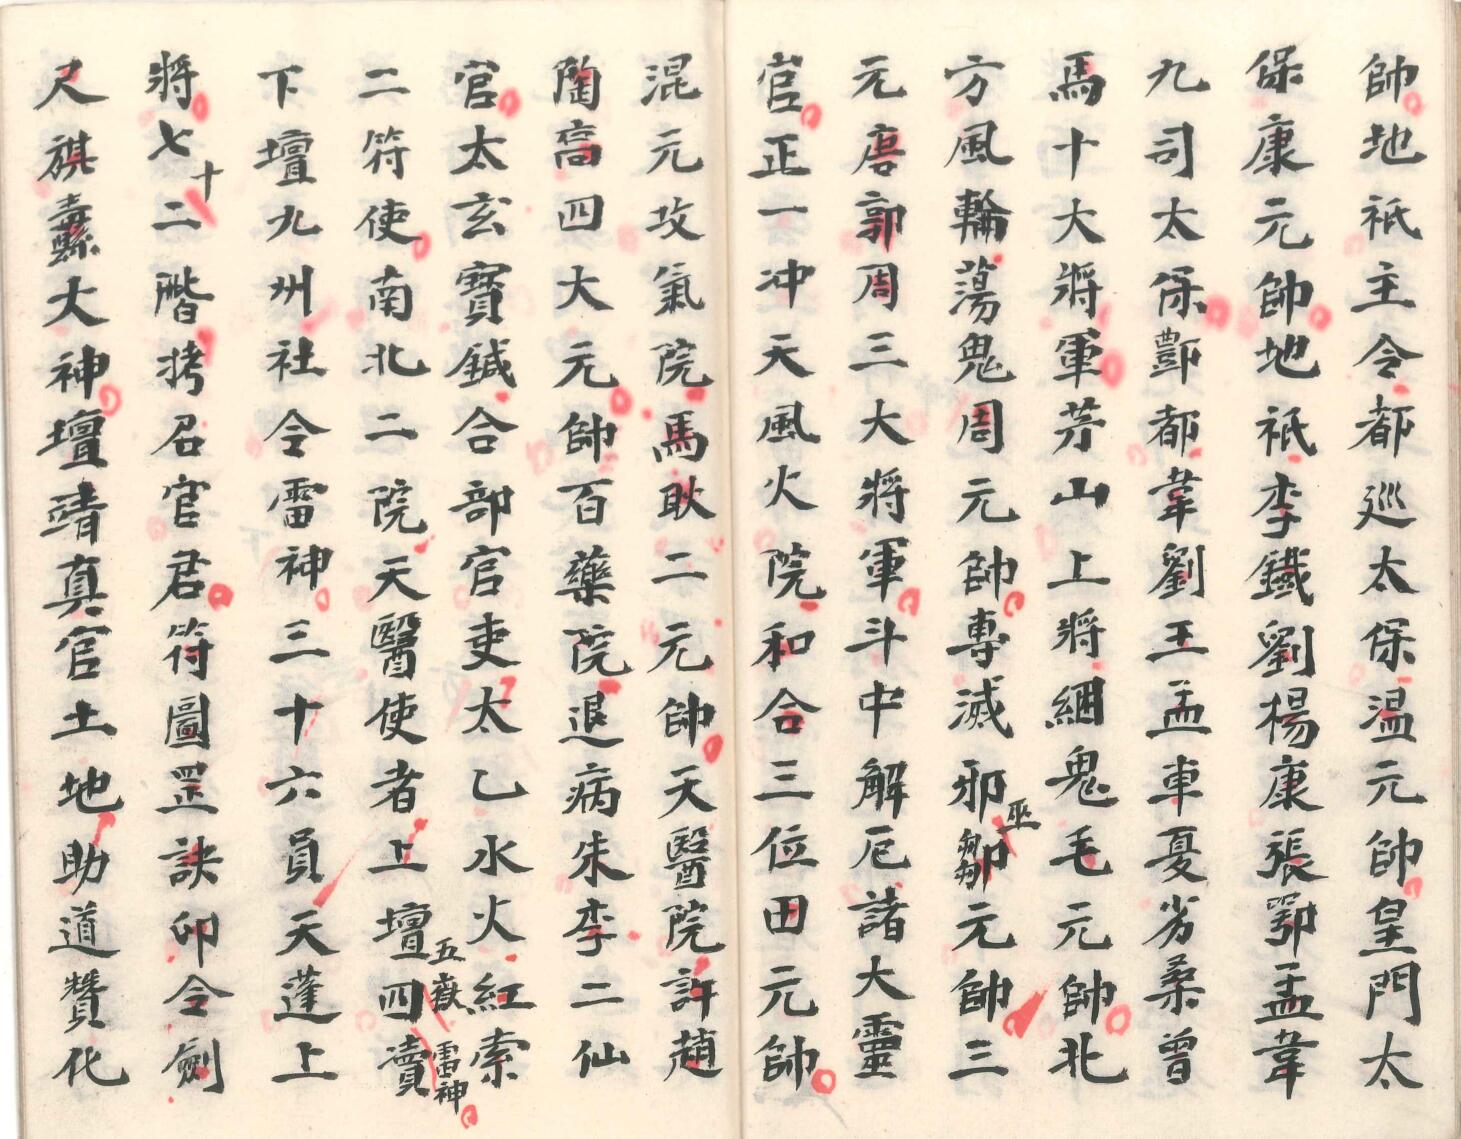 帥地祇主令都巡太保温元帥皇門太
保康元帥地祇李鐵劉楊康張鄂孟韋
九司太保酆都韋劉王孟車夏劣桑曾
馬十大將軍芳山上將綑鬼毛元帥北
方風輪蕩鬼周元帥專滅邪巫鄒元帥三
元唐郭周三大將軍斗中解厄諸大靈
官正一冲天風火院和合三位田元帥
混元攻氣院馬耿二元帥天醫院許趙
陶高四大元帥百藥院退病朱李二仙
官太玄寳鍼合部官吏太乙水火紅索
二符使南北二院天醫使者上壇五嶽四瀆雷神
下壇九州社令雷神三十六員天蓬上
將七十二階拷召官君符圖罡訣印令劍
尺旗纛大神壇靖真官土地助道贊化